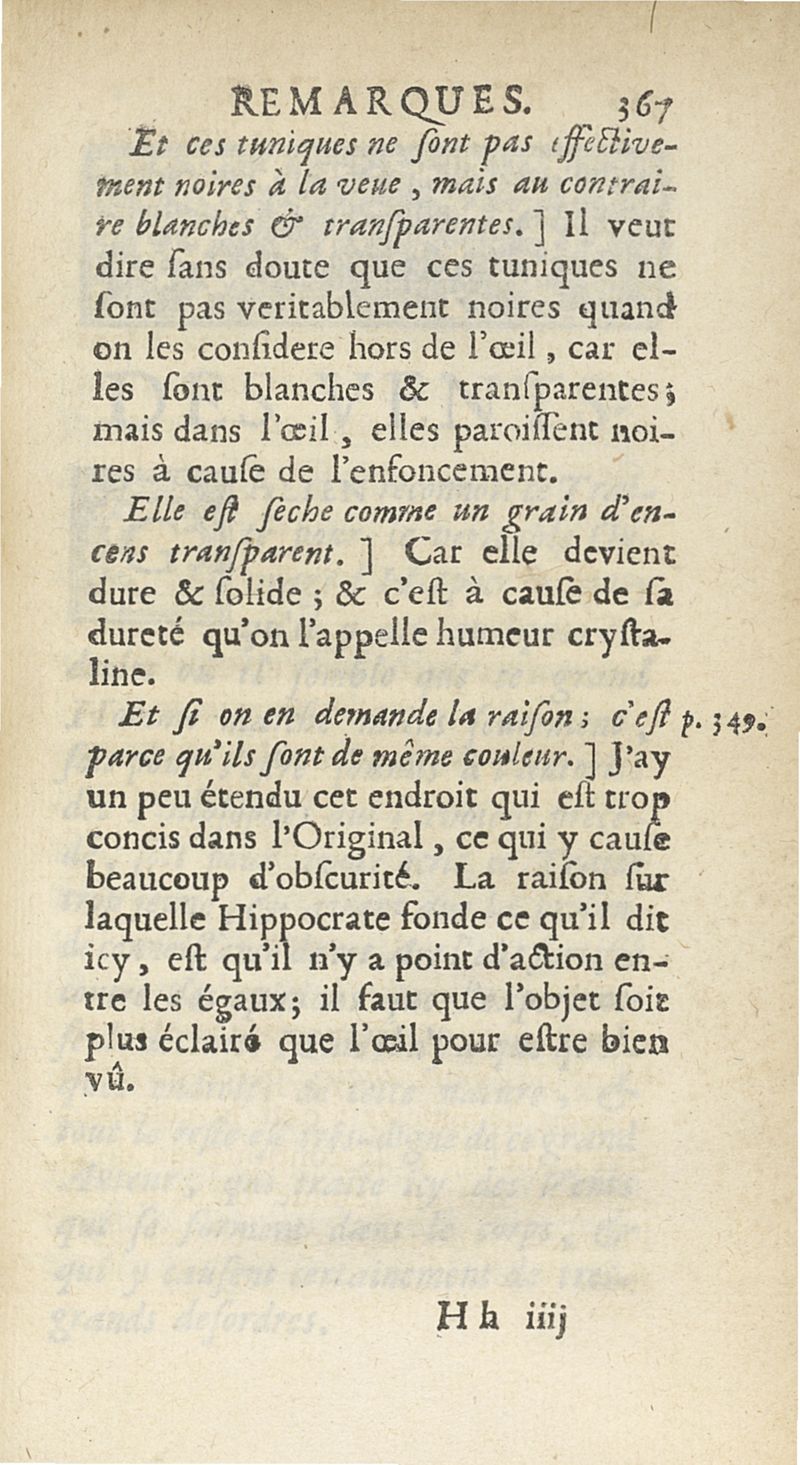 REMARQUES. 367
Et ces tuniques ne ſont pas effective-
ment noires à la veue, mais au contrai-
re blanches & tranſparentes. ] Il veut
dire ſans doute que ces tuniques ne
ſont pas veritablement noires quand
on les conſidere hors de l'œil, car el-
les ſont blanches & tranſparentes;
mais dans l'œil, elles paroiſſent noi-
res à cauſe de l'enfoncement.
Elle eſt ſeche comme un grain d'en-
cens tranſparent. ] Car elle devient
dure & ſolide ; & c'eſt à cauſe de ſa
dureté qu'on l'appelle humeur cryſta-
line.
Et ſi on en demande la raiſon ; c'eſt p. 349.
parce qu'ils ſont de même couleur. ] J'ay
un peu étendu cet endroit qui eſt trop
concis dans l'Original, ce qui y cauſe
beaucoup d'obſcurité. La raiſon ſur
laquelle Hippocrate fonde ce qu'il dit
icy, eſt qu'il n'y a point d'action en-
tre les égaux; il faut que l'objet ſoit
plus éclairé que l'œil pour eſtre bien
vû.
Hh iiij